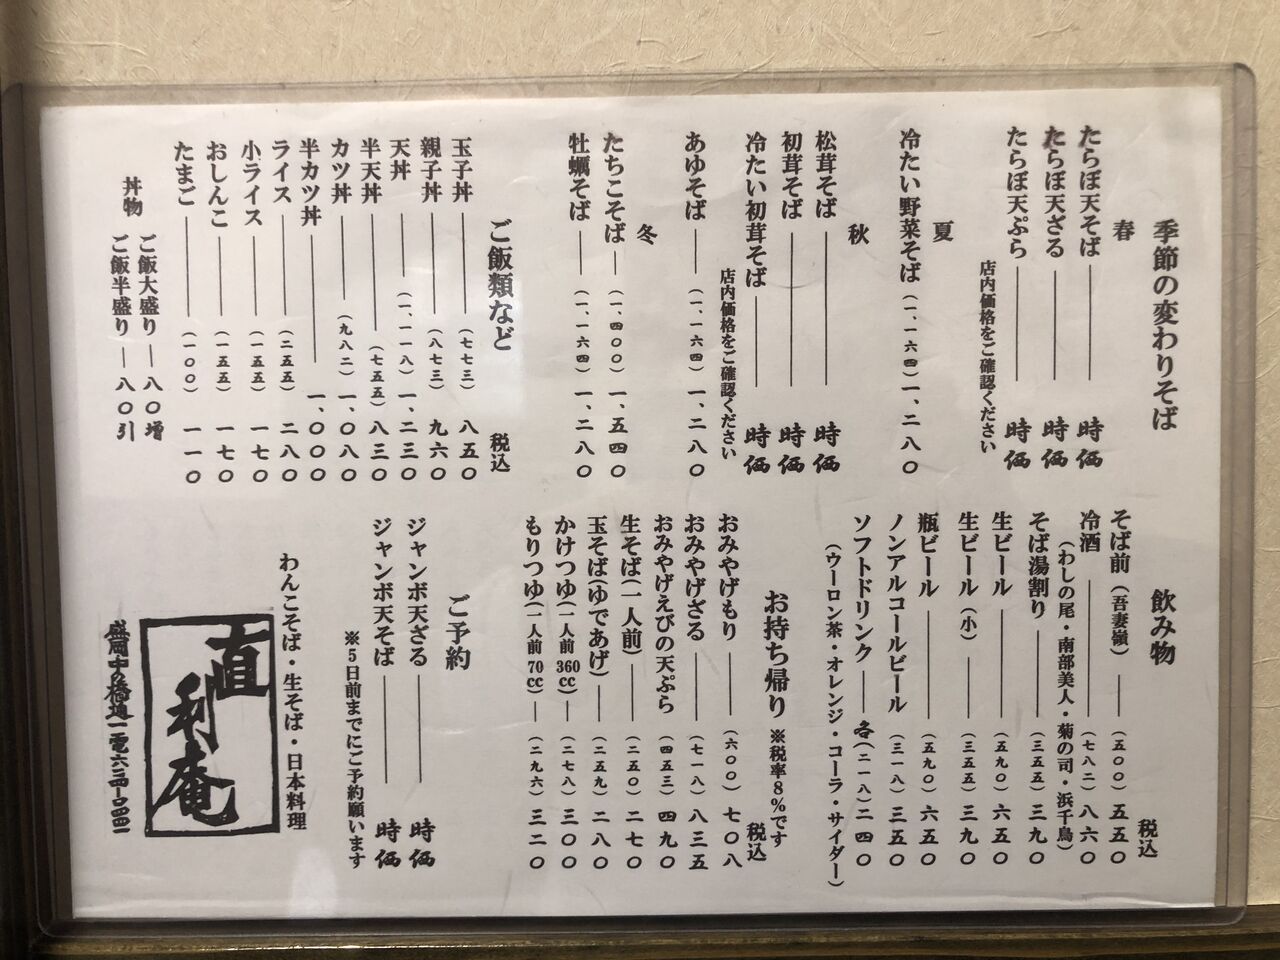 季節の変わりそば
春
たらぼ天そば 時価
たらぼ天ざる 時価
たらぼ天ぷら 時価
店内価格をご確認ください
夏
冷たい野菜そば (一、一六四) 一、二八〇
秋
松茸そば 時価
初茸そば 時価
冷たい初茸そば 時価
店内価格をご確認ください
あゆそば (一、一六四) 一、二八〇
冬
たちこそば (一、四〇〇) 一、五四〇
牡蠣そば (一、一六四) 一、二八〇
ご飯類など 税込
玉子丼 (七七三) 八五〇
親子丼 (八七三) 九六〇
天丼 (一、一一八) 一、二三〇
半天丼 (七五五) 八三〇
カツ丼 (九八二) 一、〇八〇
半カツ丼 一、〇〇〇
ライス (二五五) 二八〇
小ライス (一五五) 一七〇
おしんこ (一五五) 一七〇
たまご (一〇〇) 一一〇
丼物 ご飯大盛り 八〇増
ご飯半盛り 八〇引
飲み物 税込
そば前(吾妻嶺) (五〇〇) 五五〇
冷酒 (七八二) 八六〇
(わしの尾・南部美人・菊の司・浜千鳥)
そば湯割り (三五五) 三九〇
生ビール (五九〇) 六五〇
生ビール(小) (三五五) 三九〇
瓶ビール (五九〇) 六五〇
ノンアルコールビール (三一八) 三五〇
ソフトドリンク 各(二一八)二四〇
(ウーロン茶・オレンジ・コーラ・サイダー)
お持ち帰り ※税率8%です 税込
おみやげもり (六〇〇) 七〇八
おみやげざる (七一八) 八三五
おみやげえびの天ぷら (四五三) 四九〇
生そば(一人前) (二五〇) 二七〇
玉そば(ゆであげ) (二五九) 二八〇
かけつゆ(一人前 360cc) (二七八) 三〇〇
もりつゆ(一人前 70cc) (二九六) 三二〇
ご予約
ジャンボ天ざる 時価
ジャンボ天そば 時価
※5日前までにご予約願います
わんこそば・生そば・日本料理
直利庵
盛岡中の橋通